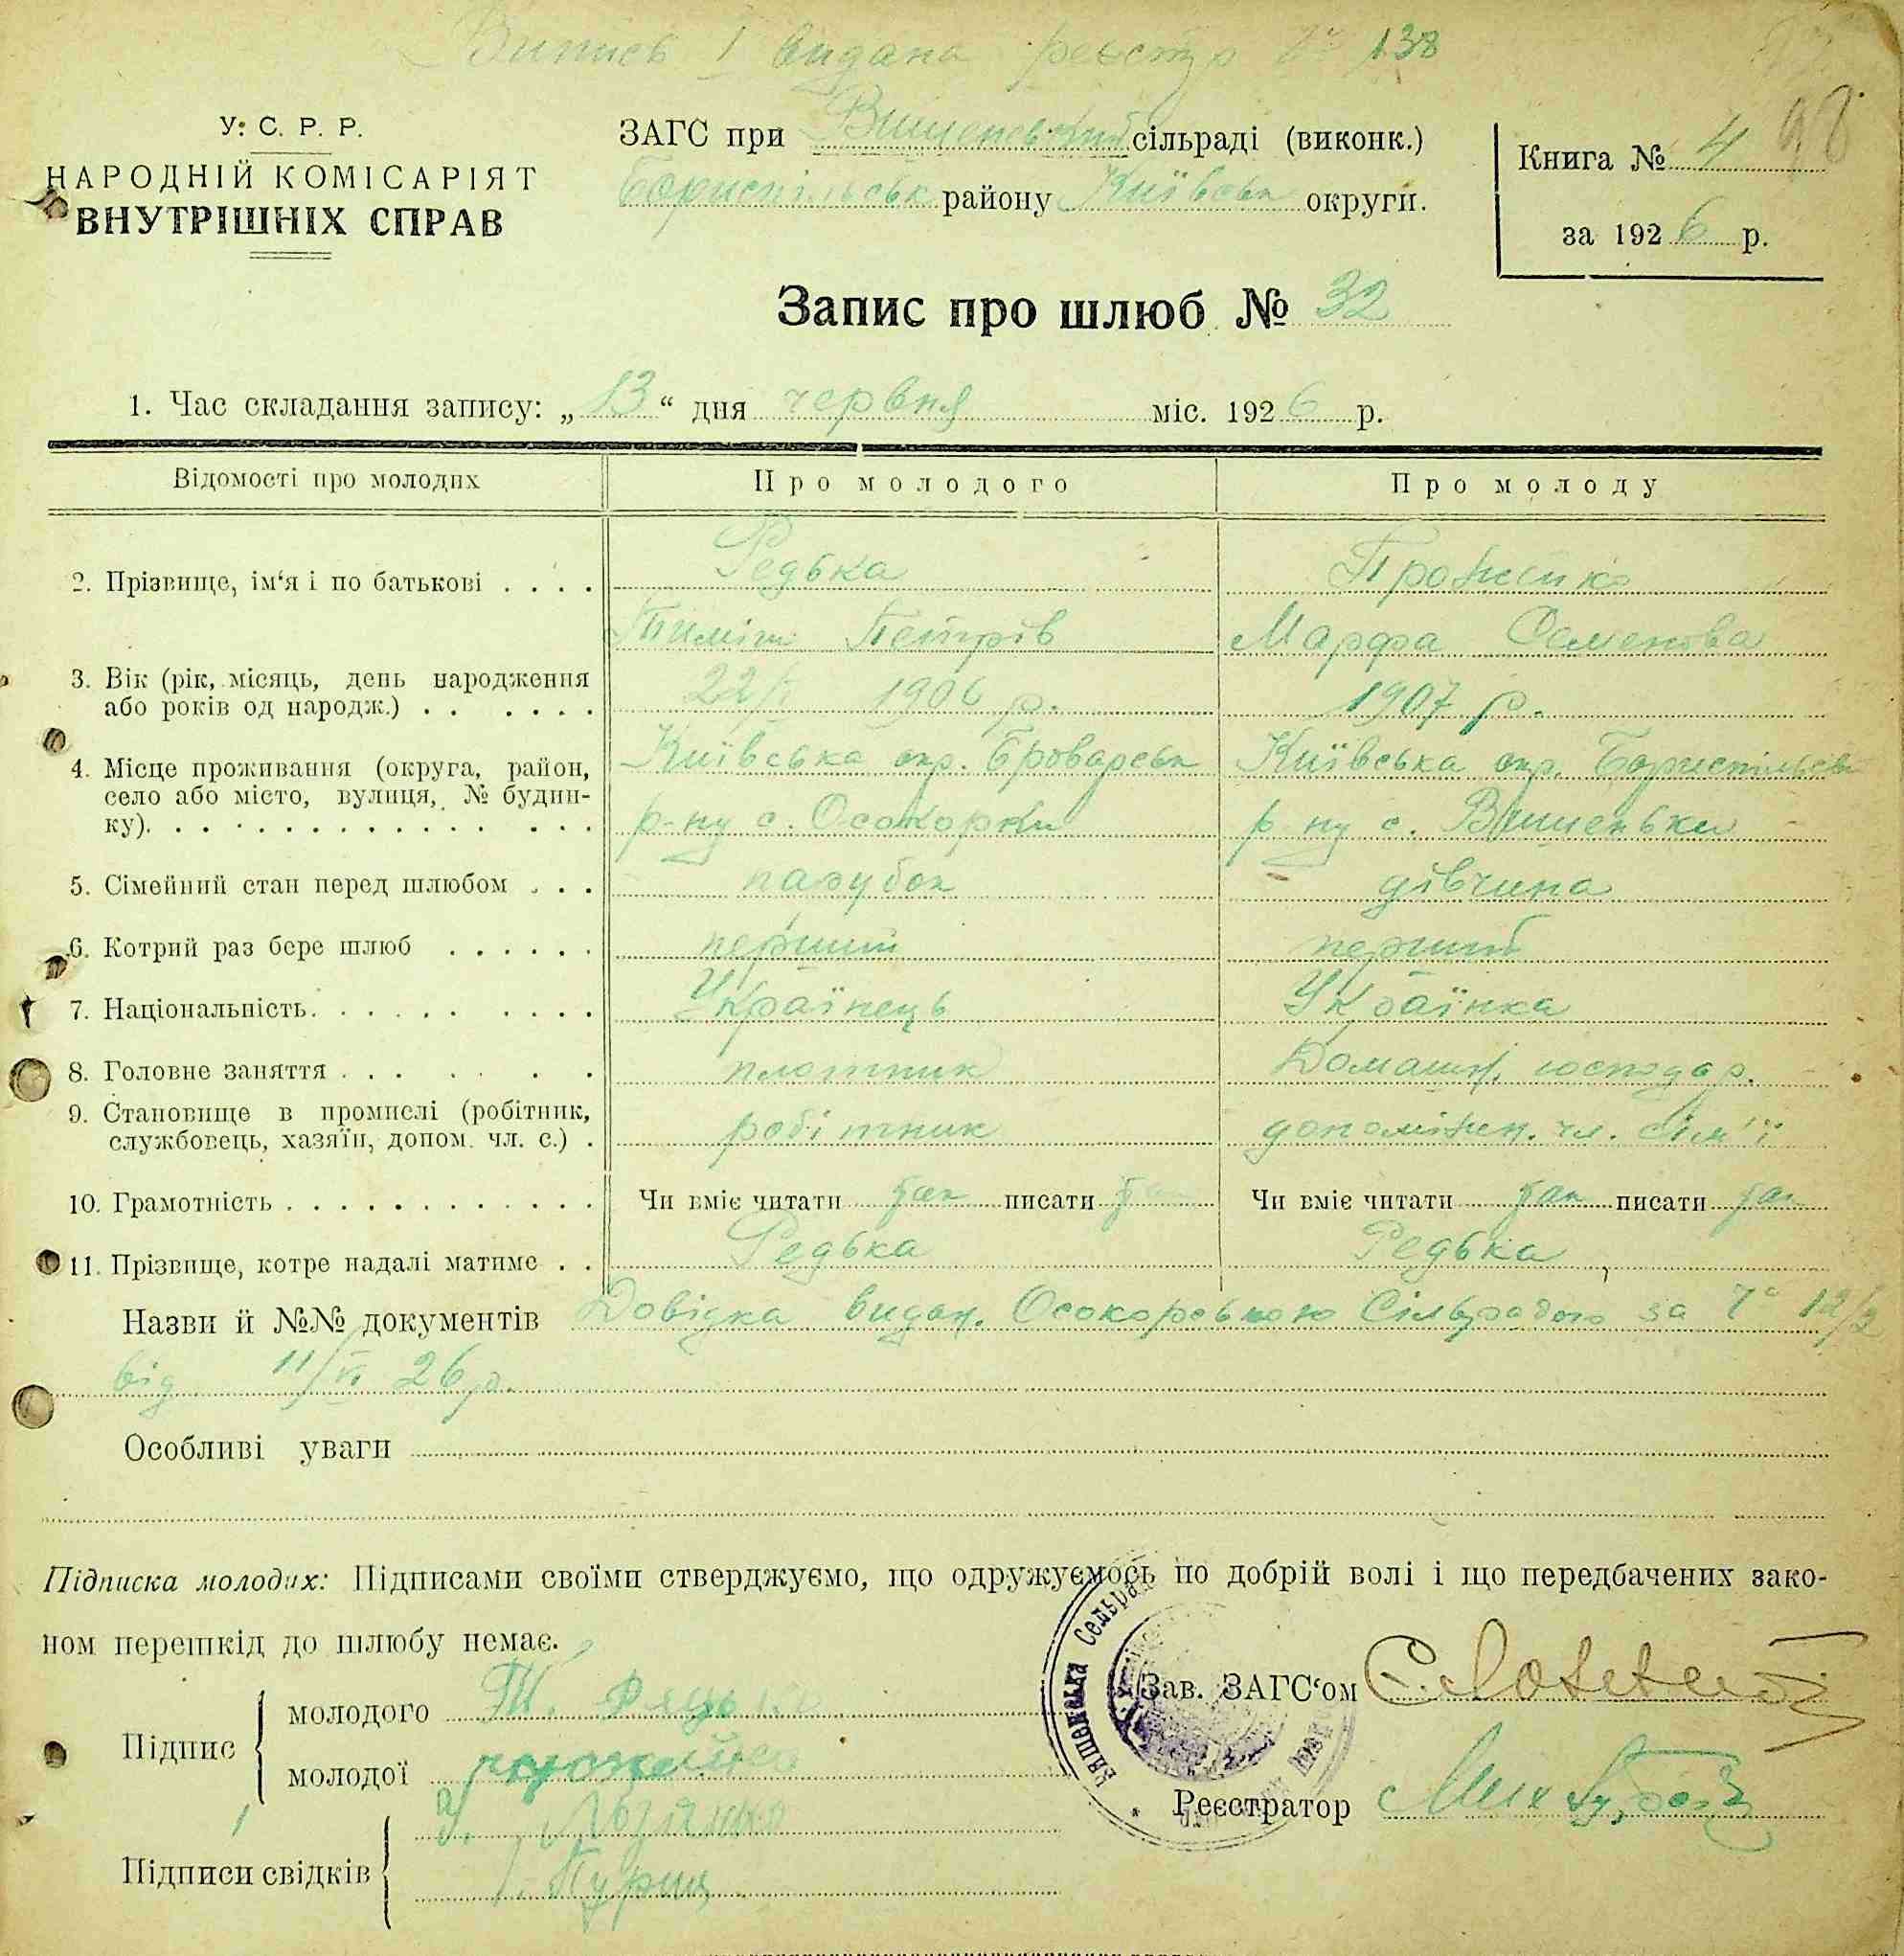 Випись 1 видана реєстр № 138
У. С. Р. Р.
НАРОДНІЙ КОМІСАРІЯТ
ВНУТРІШНІХ СПРАВ
ЗАГС при Вишеньківській сільраді (виконк.)
Бориспільськ району Київськ округи.
Книга № 4
за 1926 р.
98
Запис про шлюб № 32
1. Час складання запису: „13“ дня червня міс. 1926 р.
Відомості про молодих Про молодого Про молоду
2. Прізвище, ім‘я і по батькові . . . . Редька
Тиміш Петрів Марфа Семенова
3. Вік (рік, місяць, день народження
або років од народж.) . . . . . . 22/V 1906 р. 1907 р.
4. Місце проживання (округа, район,
село або місто, вулиця, № будин-
ку). . . . . . . . . . . . . . .
Київська окр. Броварськ Київська окр. Бориспільськ
р-ну с. Осокорки р-ну с. Вишеньки
5. Сімейний стан перед шлюбом . . . парубок дівчина
6. Котрий раз бере шлюб . . . . . . перший перший
7. Національність. . . . . . . . . . Українець Українка
8. Головне заняття . . . . . . . плотник Домашн. господар.
9. Становище в промислі (робітник,
службовець, хазяїн, допом. чл. с.) . робітник допоміжн. чл. сім'ї
10. Грамотність . . . . . . . . . . . . Чи вміє читати так писати так Чи вміє читати так писати так
11. Прізвище, котре надалі матиме . . Редька Редька
Назви й №№ документів Довідка видан. Осокорською Сільрадою за № 12/2
від 11/VI 26 р.
Особливі уваги
Підписка молодих: Підписами своїми стверджуємо, що одружуємось по добрій волі і що передбачених зако-
ном перешкід до шлюбу немає.
Підпис
молодого Т. Редька
молодої
Підписи свідків
Зав. ЗАГС‘ом
Реєстратор